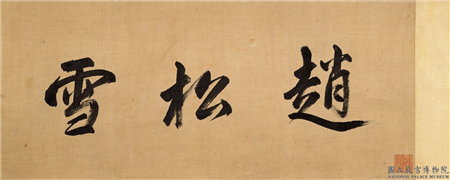 趙松雪
國立故宮博物院
NATIONAL PALACE MUSEUM